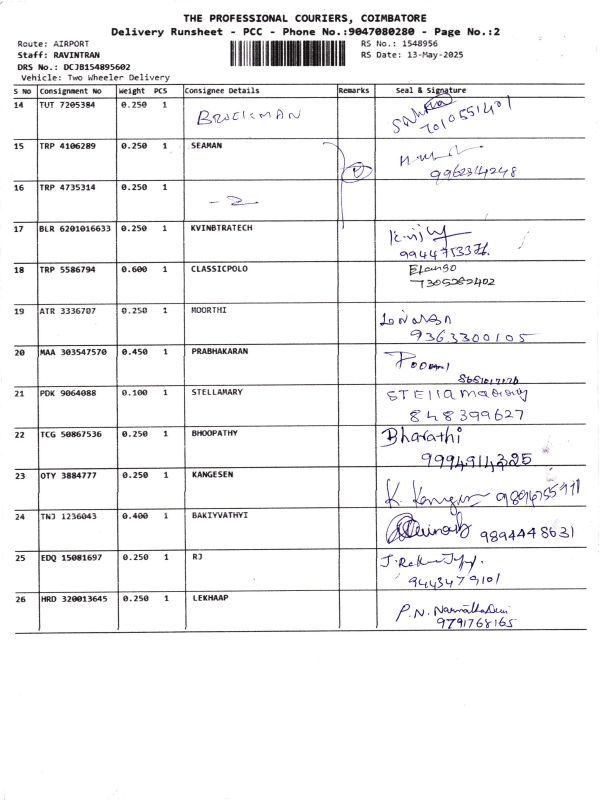 THE PROFESSIONAL COURIERS, COIMBATORE
Delivery Runsheet - PCC - Phone No.:9047080280 - Page No.:2
Route: AIRPORT RS No.: 1548956
Staff: RAVINTRAN RS Date: 13-May-2025
DRS No.: DCJB154895602
Vehicle: Two Wheeler Delivery
S No Consignment No Weight PCS Consignee Details Remarks Seal & Signature
14 TUT 7205384 0.250 1 7010551401
15 TRP 4106289 0.250 1 SEAMAN
9962314248
16 TRP 4735314 0.250 1
17 BLR 6201016633 0.250 1 KVINBTRATECH
18 TRP 5586794 0.600 1 CLASSICPOLO Elango
7305282402
19 ATR 3336707 0.250 1 MOORTHI
9363300105
20 MAA 303547570 0.450 1 PRABHAKARAN
21 PDK 9064088 0.100 1 STELLAMARY STElla
848399627
22 TCG 50867536 0.250 1 BHOOPATHY Bharathi
9994914325
23 OTY 3884777 0.250 1 KANGESEN
24 TNJ 1236043 0.400 1 BAKIYVATHYI
9894448631
25 EDQ 15081697 0.250 1 RJ
9443479101
26 HRD 320013645 0.250 1 LEKHAAP
P.N.
9791768165